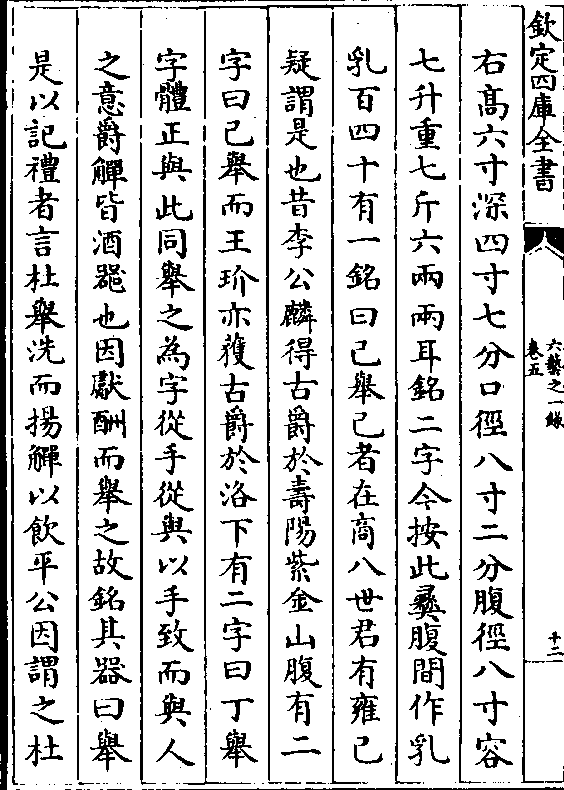 欽定四庫全書
六藝之一錄
卷五
十二
右髙六寸深四寸七分口徑八寸二分腹徑八寸容
七升重七斤六兩兩耳銘二字今按此彞腹間作乳
乳百四十有一銘曰己舉己者在商八世君有雍己
疑謂是也昔李公麟得古爵於壽陽紫金山腹有二
字曰己舉而王玠亦獲古爵於洛下有二字曰丁舉
字體正與此同舉之為字從手從與以手致而與人
之意爵觶皆酒器也因獻酬而舉之故銘其器曰舉
是以記禮者言杜舉洗而揚觶以飲平公因謂之杜